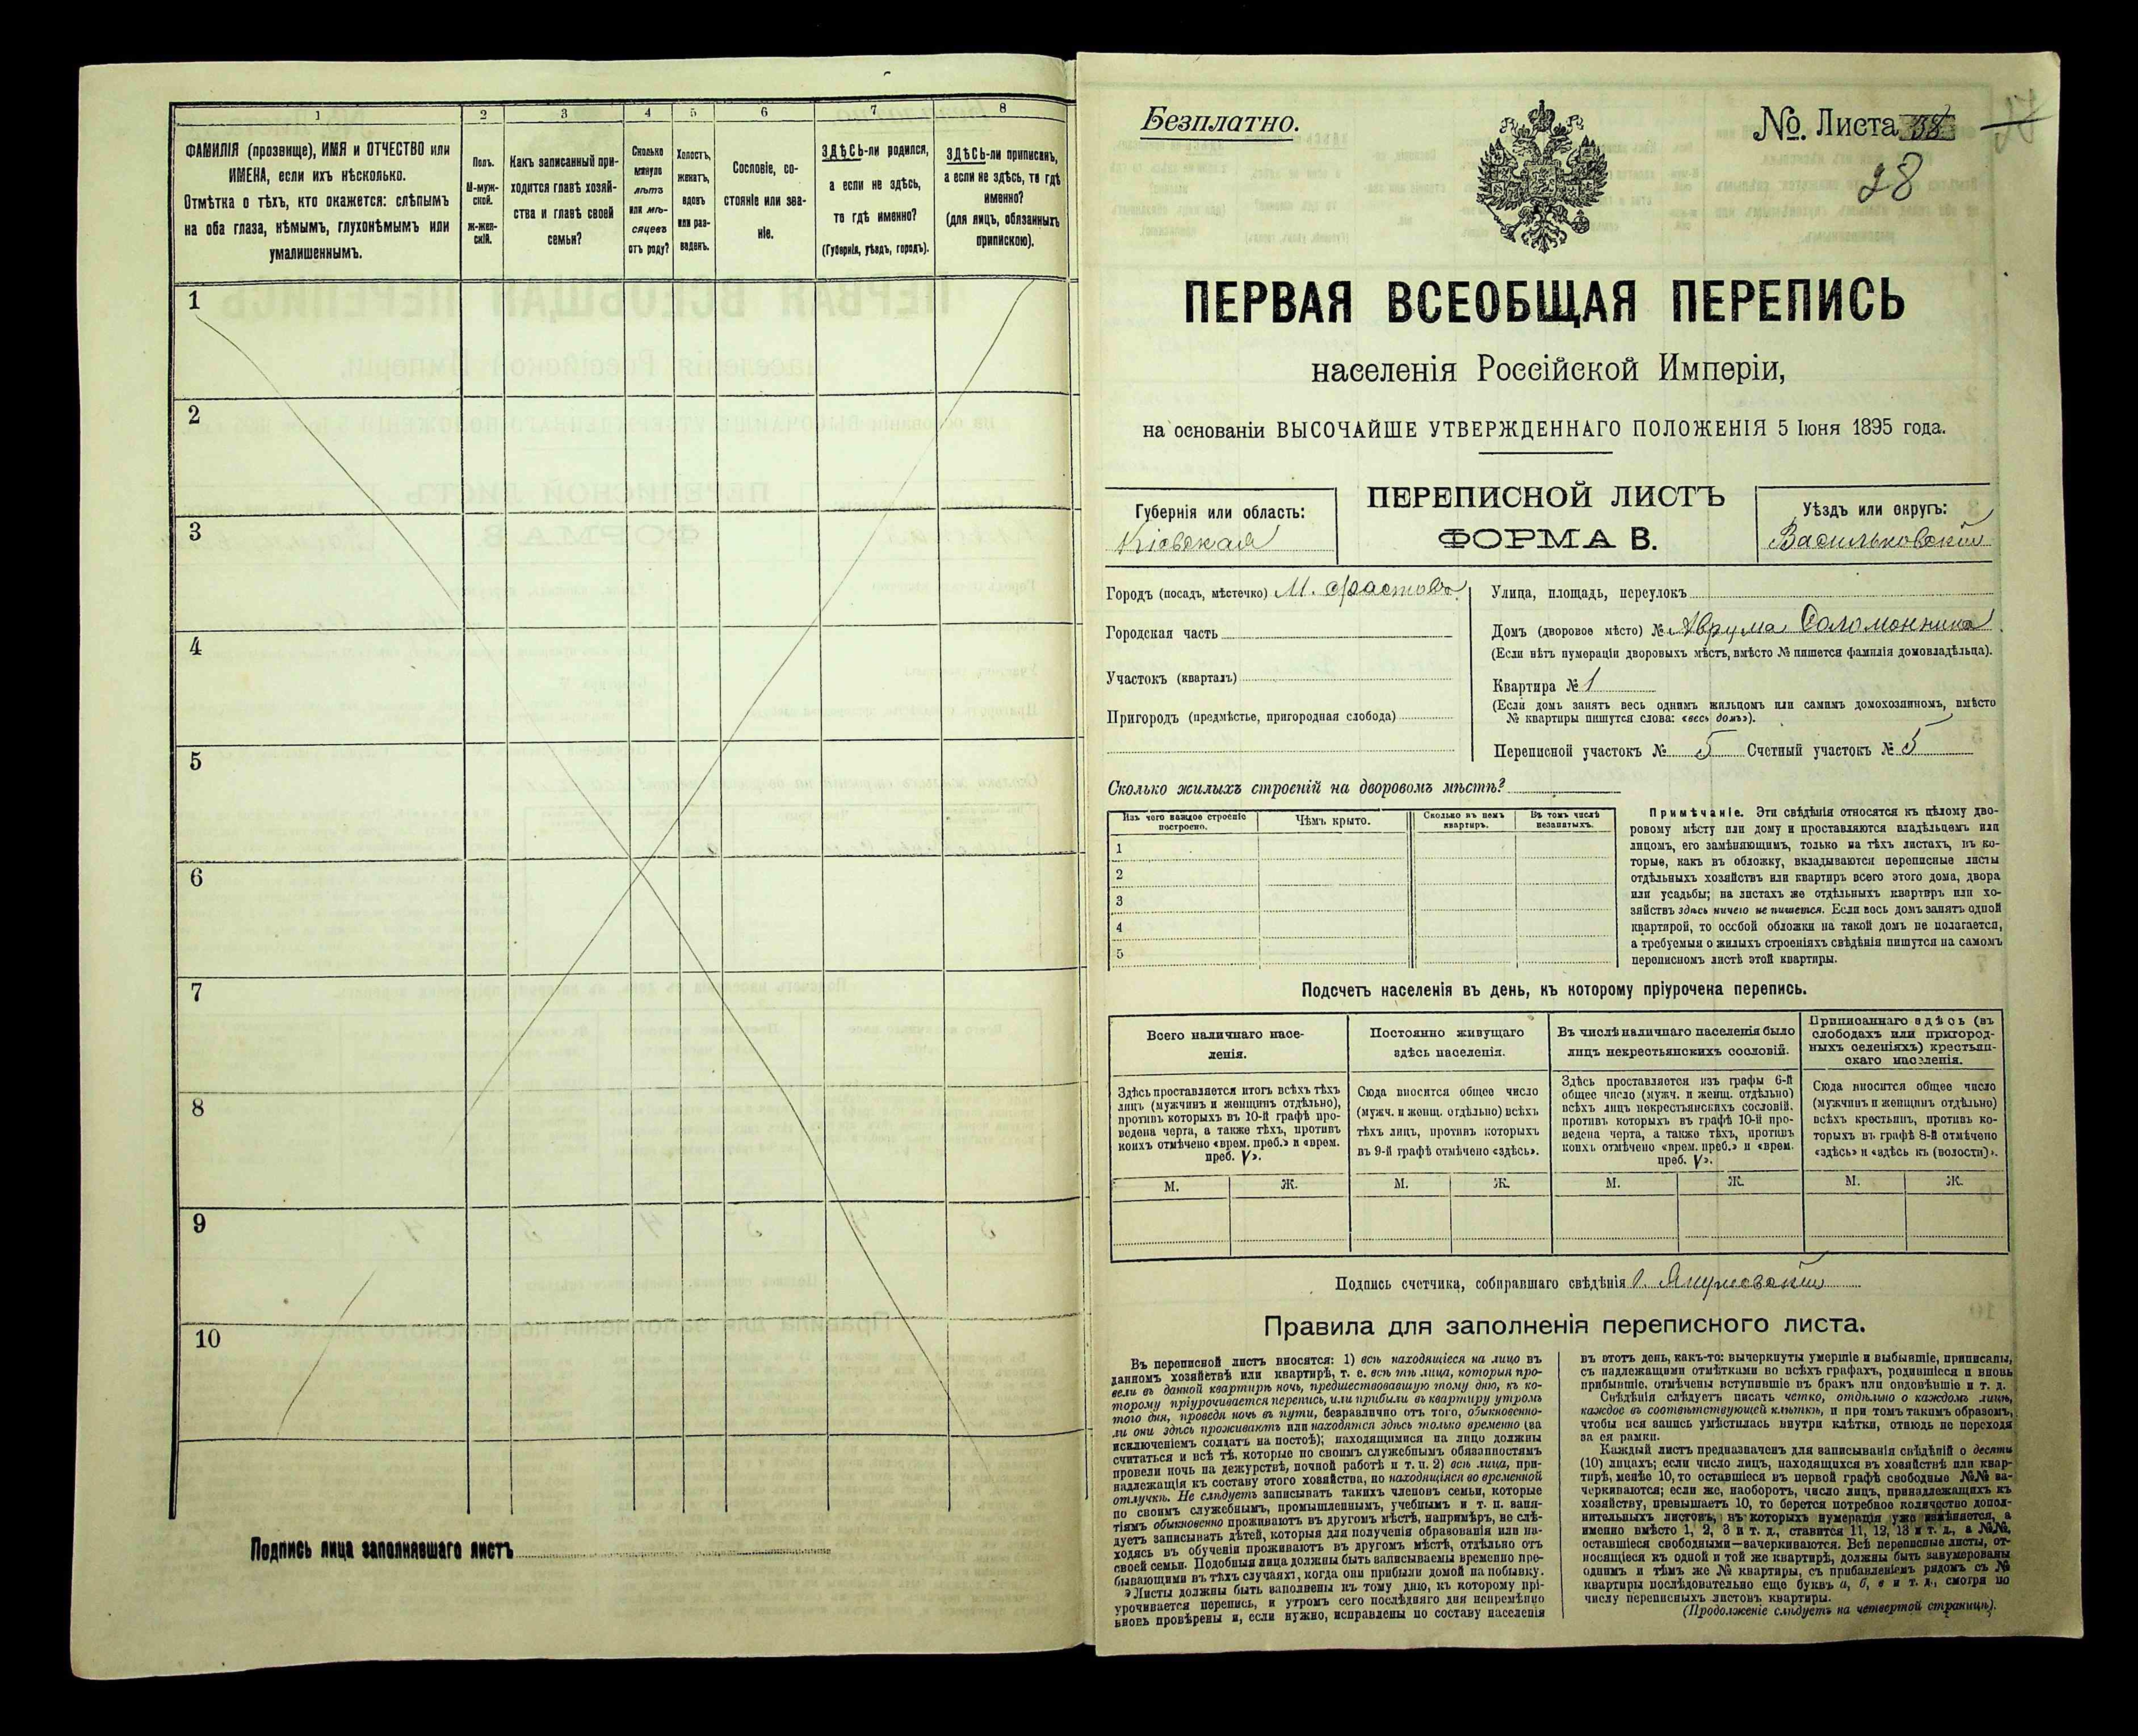 1
2
3
4
5
6
7
8
ФАМИЛІЯ (прозвище), ИМЯ и ОТЧЕСТВО или
ИМЕНА, если ихъ нѣсколько.
Отмѣтка о тѣхъ, кто окажется: слѣпымъ
на оба глаза, нѣмымъ, глухонѣмымъ или
умалишеннымъ.
Полъ.
М-муж-
ской.
Ж-жен-
скій.
Какъ записанный при-
ходится главѣ хозяй-
ства и главѣ своей
семьи?
Сколько
минуло
лѣтъ
или мѣ-
сяцевъ
отъ роду?
Холостъ,
женатъ,
вдовъ
или раз-
веденъ.
Сословіе, со-
стояніе или зва-
ніе.
ЗДѢСЬ-ли родился,
а если не здѣсь,
то гдѣ именно?
(Губернія, уѣздъ, городъ).
ЗДѢСЬ-ли приписанъ,
а если не здѣсь, то гдѣ
именно?
(для лицъ, обязанныхъ
припискою).
1
2
3
4
5
6
7
8
9
10
Подпись лица заполнявшаго листъ
Безплатно.
№. Листа
28
ПЕРВАЯ ВСЕОБЩАЯ ПЕРЕПИСЬ
населенія Россійской Имперіи,
на основаніи ВЫСОЧАЙШЕ УТВЕРЖДЕННАГО ПОЛОЖЕНІЯ 5 Іюня 1895 года.
Губернія или область:
Кіевская
ПЕРЕПИСНОЙ ЛИСТЪ
ФОРМА В.
Уѣздъ или округъ:
Васильковскій
Городъ (посадъ, мѣстечко) М. Фастовъ
Городская часть
Участокъ (кварталъ)
Пригородъ (предмѣстье, пригородная слобода)
Улица, площадь, переулокъ
Домъ (дворовое мѣсто) № Аврума Соломонника
(Если нѣтъ нумераціи дворовыхъ мѣстъ, вмѣсто № пишется фамилія домовладѣльца).
Квартира № 1
(Если домъ занятъ весь однимъ жильцомъ или самимъ домохозяиномъ, вмѣсто
№ квартиры пишутся слова: «весь домъ»).
Переписной участокъ № 5 Счетный участокъ № 5
Сколько жилыхъ строеній на дворовомъ мѣстѣ?
Изъ чего каждое строеніе
построено.
Чѣмъ крыто.
Сколько въ немъ
квартиръ.
Въ томъ числѣ
незанятыхъ.
1
2
3
4
5
Примѣчаніе. Эти свѣдѣнія относятся къ цѣлому дво-
ровому мѣсту или дому и проставляются владѣльцемъ или
лицомъ, его замѣняющимъ, только на тѣхъ листахъ, въ ко-
торые, какъ въ обложку, вкладываются переписные листы
отдѣльныхъ хозяйствъ или квартиръ всего этого дома, двора
или усадьбы; на листахъ же отдѣльныхъ квартиръ или хо-
зяйствъ здѣсь ничего не пишется. Если весь домъ занятъ одной
квартирой, то особой обложки на такой домъ не полагается,
а требуемыя о жилыхъ строеніяхъ свѣдѣнія пишутся на самомъ
переписномъ листѣ этой квартиры.
Подсчетъ населенія въ день, къ которому пріурочена перепись.
Всего наличнаго насе-
ленія.
Постоянно живущаго
здѣсь населенія.
Въ числѣ наличнаго населенія было
лицъ некрестьянскихъ сословій.
Приписаннаго здѣсь (въ
слободахъ или пригород-
ныхъ селеніяхъ) крестьян-
скаго населенія.
Здѣсь проставляется итогъ всѣхъ тѣхъ
лицъ (мужчинъ и женщинъ отдѣльно),
противъ которыхъ въ 10-й графѣ про-
ведена черта, а также тѣхъ, противъ
коихъ отмѣчено «врем. преб.» и «врем.
преб. V».
Сюда вносится общее число
(мужч. и женщ. отдѣльно) всѣхъ
тѣхъ лицъ, противъ которыхъ
въ 9-й графѣ отмѣчено «здѣсь».
Здѣсь проставляется изъ графы 6-й
общее число (мужч. и женщ. отдѣльно)
всѣхъ лицъ некрестьянскихъ сословій.
противъ которыхъ въ графѣ 10-й про-
ведена черта, а также тѣхъ, противъ
коихъ отмѣчено «врем. преб.» и «врем.
преб. V».
Сюда вносится общее число
(мужчинъ и женщинъ отдѣльно)
всѣхъ крестьянъ, противъ ко-
торыхъ въ графѣ 8-й отмѣчено
«здѣсь» и «здѣсь къ (волости)».
М. Ж. М. Ж. М. Ж. М. Ж.
Подпись счетчика, собиравшаго свѣдѣнія
Правила для заполненія переписного листа.
Въ переписной листъ вносятся: 1) всѣ находящіеся на лицо въ
данномъ хозяйствѣ или квартирѣ, т. е. всѣ тѣ лица, которыя про-
вели въ данной квартирѣ ночь, предшествовавшую тому дню, къ ко-
торому пріурочивается перепись, или прибыли въ квартиру утромъ
того дня, проведя ночь въ пути, безразлично отъ того, обыкновенно-
ли они здѣсь проживаютъ или находятся здѣсь только временно (за
исключеніемъ солдатъ на постоѣ); находящимися на лицо должны
считаться и всѣ тѣ, которые по своимъ служебнымъ обязанностямъ
провели ночь на дежурствѣ, ночной работѣ и т. п. 2) всѣ лица, при-
надлежащія къ составу этого хозяйства, но находящіяся во временной
отлучкѣ. Не слѣдуетъ записывать такихъ членовъ семьи, которые
по своимъ служебнымъ, промышленнымъ, учебнымъ и т. п. заня-
тіямъ обыкновенно проживаютъ въ другомъ мѣстѣ, напримѣръ, не слѣ-
дуетъ записывать дѣтей, которыя для полученія образованія или на-
ходясь въ обученіи проживаютъ въ другомъ мѣстѣ, отдѣльно отъ
своей семьи. Подобныя лица должны быть записываемы временно пре-
бывающими въ тѣхъ случаяхъ, когда они прибыли домой на побывку.
Листы должны быть заполнены къ тому дню, къ которому прі-
урочивается перепись, и утромъ сего послѣдняго дня непремѣнно
вновь провѣрены и, если нужно, исправлены по составу населенія
въ этотъ день, какъ-то: вычеркнуты умершіе и выбывшіе, приписаны,
съ надлежащими отмѣтками во всѣхъ графахъ, родившіеся и вновь
прибывшіе, отмѣчены вступившіе въ бракъ или овдовѣвшіе и т. д.
Свѣдѣнія слѣдуетъ писать четко, отдѣльно о каждомъ лицѣ,
каждое въ соотвѣтствующей клѣткѣ, и при томъ такимъ образомъ,
чтобы вся запись умѣстилась внутри клѣтки, отнюдь не переходя
за ея рамки.
Каждый листъ предназначенъ для записыванія свѣдѣній о десяти
(10) лицахъ; если число лицъ, находящихся въ хозяйствѣ или квар-
тирѣ, менѣе 10, то оставшіеся въ первой графѣ свободные №№ за-
черкиваются; если же, наоборотъ, число лицъ, принадлежащихъ къ
хозяйству, превышаетъ 10, то берется потребное количество допол-
нительныхъ листовъ, въ которыхъ нумерація уже измѣняется, а
именно вмѣсто 1, 2, 3 и т. д., ставится 11, 12, 13 и т. д., а №№,
оставшіеся свободными—зачеркиваются. Всѣ переписные листы, от-
носящіеся къ одной и той же квартирѣ, должны быть занумерованы
однимъ и тѣмъ же № квартиры, съ прибавленіемъ рядомъ съ №
квартиры послѣдовательно еще буквъ а, б, в и т. д., смотря по
числу переписныхъ листовъ квартиры.
(Продолженіе слѣдуетъ на четвертой страницѣ).